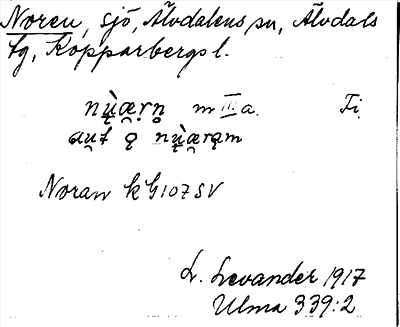 Noren, sjö, Älvdalens sn, Älvdals
tg, Kopparbergs l.
nų̀æ̣rn̥ nr III a. Fi.
au̯t ǫ nų̀æ̣rąm
Noran k G107SV
L. Levander 1917
Ulma 339:2